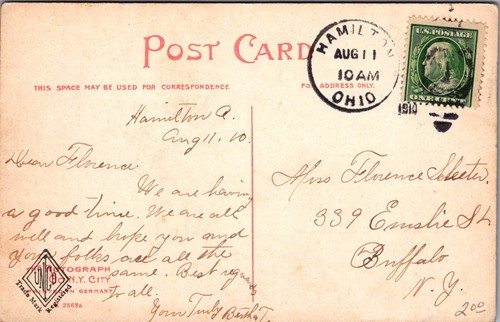 POST CARD
THIS SPACE MAY BE USED FOR CORRESPONDENCE
FOR ADDRESS ONLY.
HAMILTON
AUG 11
10 AM
1910
OHIO
U.S. POSTAGE
Hamilton O.
Aug 11. 10.
Dear Florence.
We are having
a good time. We are all
well and hope you and
your folks are all the
same. Best regards
to all.
Yours Truly Bertha T.
Miss Florence
339 Emslie St.
Buffalo
N. Y.
N.Y. CITY
GERMANY
Trade Mark
Registered
200